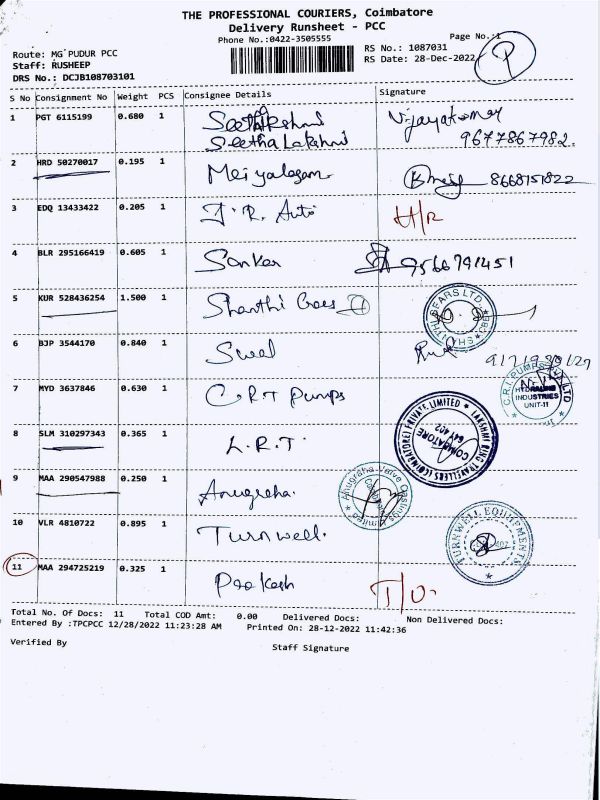 THE PROFESSIONAL COURIERS, Coimbatore
Delivery Runsheet - PCC
Phone No.:0422-3505555
Page No.:1
Route: MG PUDUR PCC
RS No.: 1087031
Staff: RUSHEEP
RS Date: 28-Dec-2022
DRS No.: DCJB108703101
S No Consignment No Weight PCS Consignee Details Signature
1 PGT 6115199 0.680 1 Seethalakshmi Vijayakumar
Seetha Lakshmi 9677867982.
2 HRD 50270017 0.195 1 Meiyalagan 8668151822
3 EDQ 13433422 0.205 1 J.R. Auto H/R
4 BLR 295166419 0.605 1 Sankar 9566791451
5 KUR 528436254 1.500 1 Shanthi Gears
SHANTHI GEARS LTD. CBE
6 BJP 3544170 0.840 1
7 MYD 3637846 0.630 1 C.R.I Pumps
C.R.I. PUMPS PVT LTD
HYDRAULINE
INDUSTRIES
UNIT-11
8 SLM 310297343 0.365 1 L.R.T.
LAKSHMI RING TRAVELLERS (COIMBATORE) PRIVATE LIMITED
COIMBATORE
641 402
9 MAA 290547988 0.250 1 Anugraha.
Anugraha Valve Castings Limited
10 VLR 4810722 0.895 1 Turnwell.
TURNWELL EQUIPMENTS
11 MAA 294725219 0.325 1 Prakash T/O.
Total No. Of Docs: 11 Total COD Amt: 0.00 Delivered Docs: Non Delivered Docs:
Entered By :TPCPCC 12/28/2022 11:23:28 AM Printed On: 28-12-2022 11:42:36
Verified By
Staff Signature